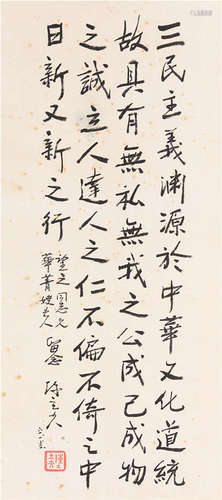 三民主義淵源於中華文化道統
故具有無私無我之公成己成物
之誠立人達人之仁不偏不倚之中
日新又新之行
望之同志兄
華菁嫂夫人
留念
陳立夫